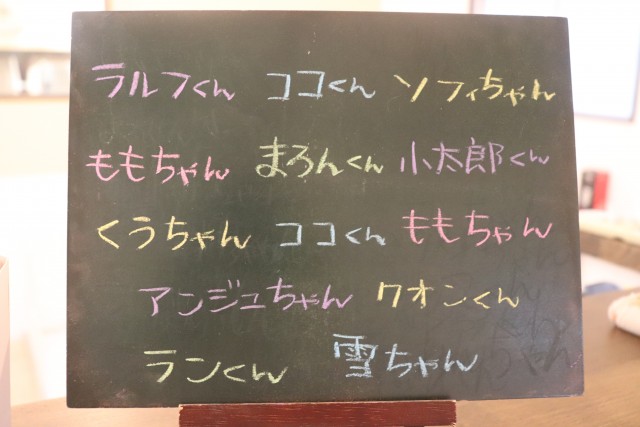 ラルフくん ココくん ソフィちゃん
ももちゃん まろんくん 小太郎くん
くうちゃん ココくん ももちゃん
アンジュちゃん クオンくん
ランくん 雪ちゃん